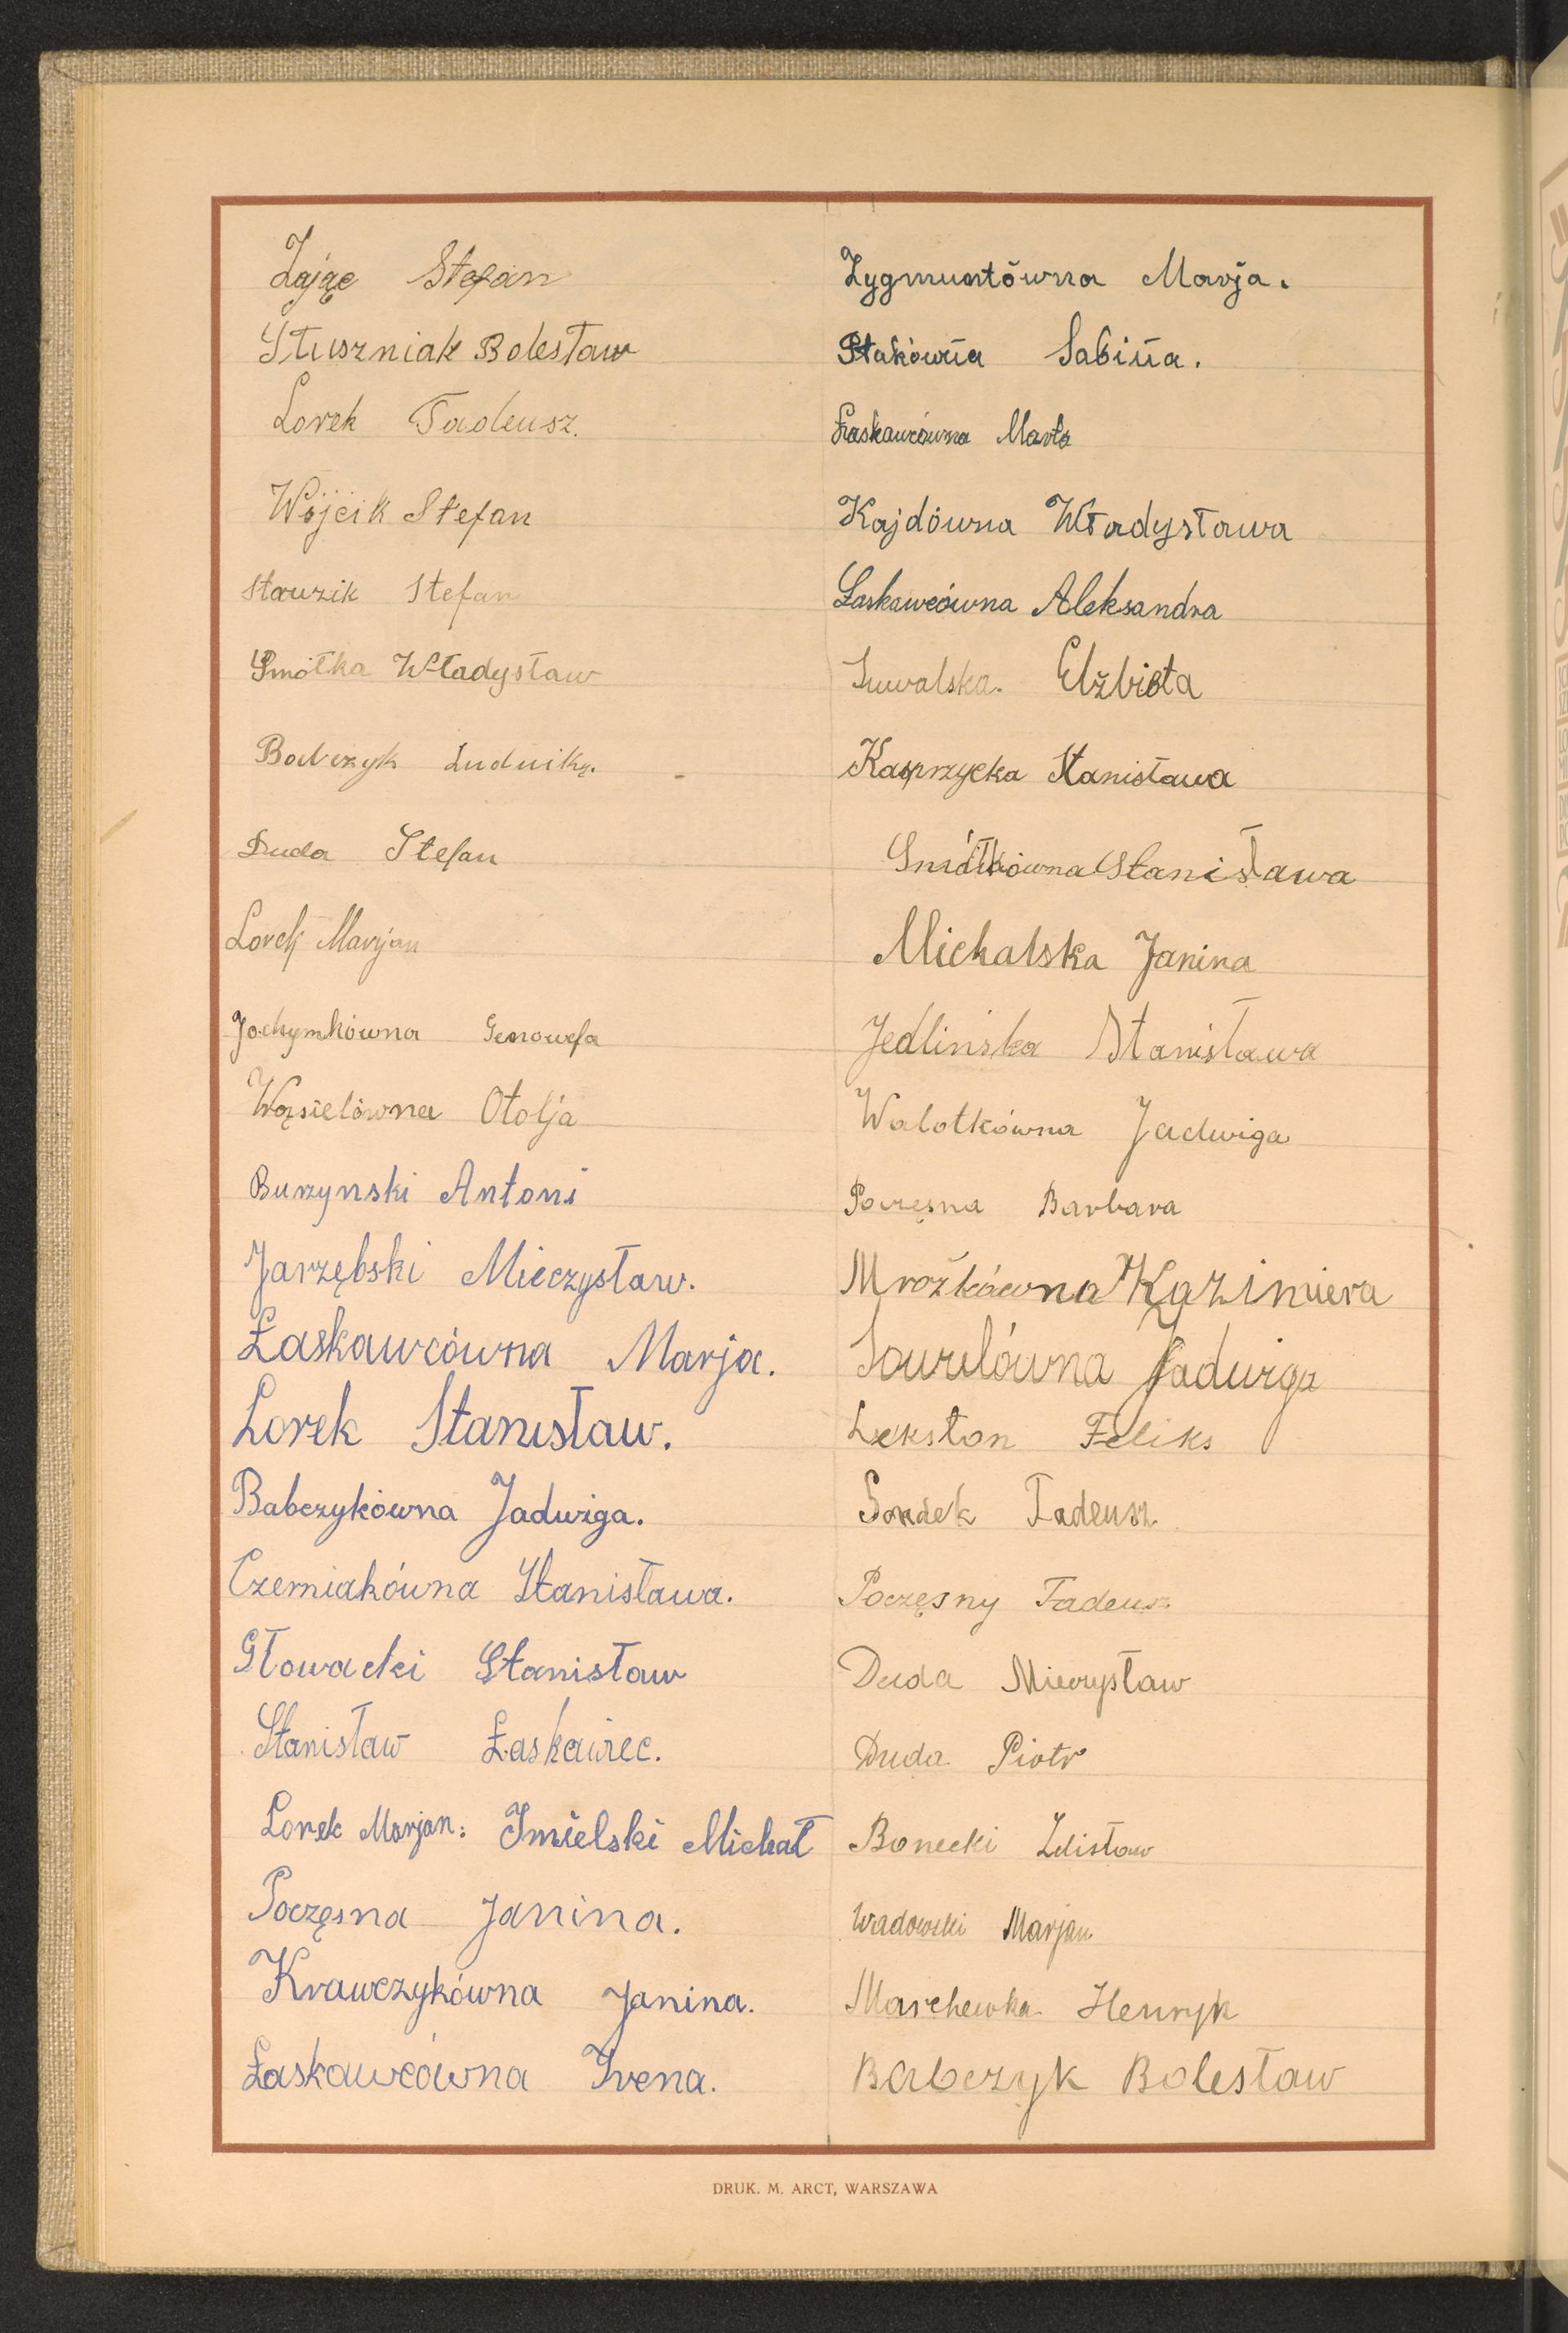 Zając Stefan
Stuszniak Bolesław
Lorek Tadeusz.
Wójcik Stefan
Stauzik Stefan
Smółka Władysław
Babczyk Ludwik.
Duda Stefan
Lorek Marjan
Jochymkówna Genowefa
Wąsielówna Otolja
Burzynski Antoni
Jarzębski Mieczysław.
Łaskawcówna Marja.
Lorek Stanisław.
Babczykówna Jadwiga.
Czerniakówna Stanisława.
Głowacki Stanisław
Stanisław Łaskawiec.
Lorek Marjan: Imielski Michał
Poczęsna Janina.
Krawczykówna Janina.
Łaskawcówna Irena.
Zygmuntówna Marja.
Ptakówna Sabina.
Łaskawcówna Marta
Kajdówna Władysława
Łaskawcówna Aleksandra
Suwalska. Elżbieta
Kasprzycka Stanisława
Smółkówna Stanisława
Michalska Janina
Jedlińska Stanisława
Walotkówna Jadwiga
Poczęsna Barbara
Mrożkówna Kazimiera
Jadwiga
Lekston Feliks
Sondek Tadeusz
Poczęsny Tadeusz
Duda Mieczysław
Duda Piotr
Bonecki Zdisław
Wadowski Marjan
Marchewka Henryk
Babczyk Bolesław
DRUK. M. ARCT, WARSZAWA